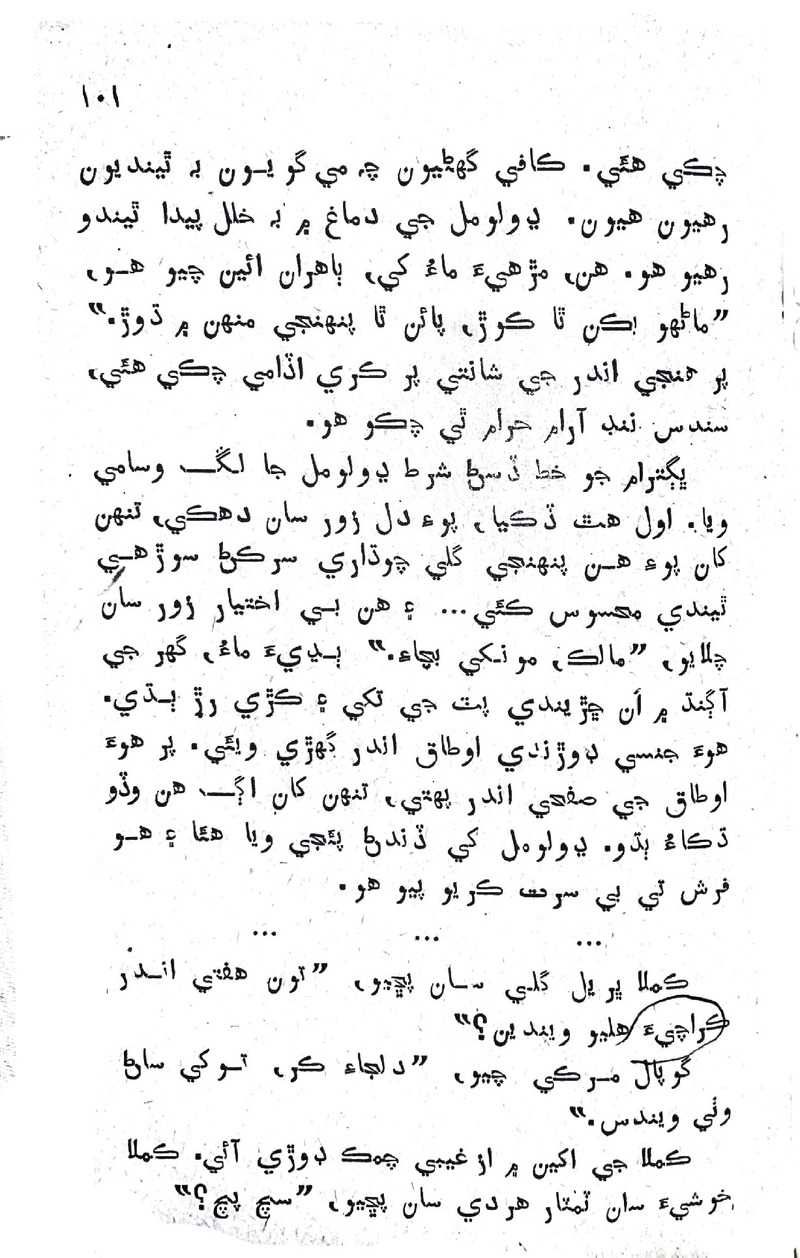 ۱۰۱
چڪي هئي. ڪافي گهڻيون چہ مي گويون بہ ٿينديون
رهيون هيون. ڊولومل جي دماغ ۾ بہ خلل پيدا ٿيندو
رهيو هو. هن، مڙهيءَ ماءُ کي، ٻاهران ائين چيو هو،
”ماڻهو بڪن ٿا ڪوڙ، پائن ٿا پنهنجي منهن ۾ ڌوڙ.“
پر هنجي اندر جي شانتي پر ڪري اڏامي چڪي هئي،
سندس ننڊ آرام حرام ٿي چڪو هو.
ڀڳترام جو خط ڏسڻ شرط ڊولومل جا لڱ وسامي
ويا. اول هٿ ڏڪيا، پوءِ دل زور سان دهڪي، تنهن
کان پوءِ هن پنهنجي گلي چوڌاري سرڪڻ سوڙهي
ٿيندي محسوس ڪئي... ۽ هن بي اختيار زور سان
چلايو، ”مالڪ، مونکي بچاءِ.“ ٻڍيءَ ماءُ، گهر جي
آڳنڌ ۾ اُن ڇڙيندي پٽ جي تکي ۽ ڪڙي رڙ ٻڌي.
هوءَ جنسي ڊوڙندي اوطاق اندر گهڙي ويئي. پر هوءَ
اوطاق جي صفحي اندر پهتي، تنهن کان اڳ هن وڏو
ڌڪاءُ ٻڌو. ڊولومل کي ڏندڻ پئجي ويا هئا ۽ هو
فرش تي بي سرت ڪريو پيو هو.
... ... ...
ڪملا ڀريل گلي سان پڇيو، ”تون هفتي اندر
ڪراچيءَ هليو ويندين؟“
گوپال مرڪي چيو، ”دلجاءِ ڪر، توکي ساڻ
وٺي ويندس.“
ڪملا جي اکين ۾ ازغيبي چمڪ ڊوڙي آئي. ڪملا
خوشيءَ سان ٽمٽار هردي سان پڇيو، ”سچ پچ؟“